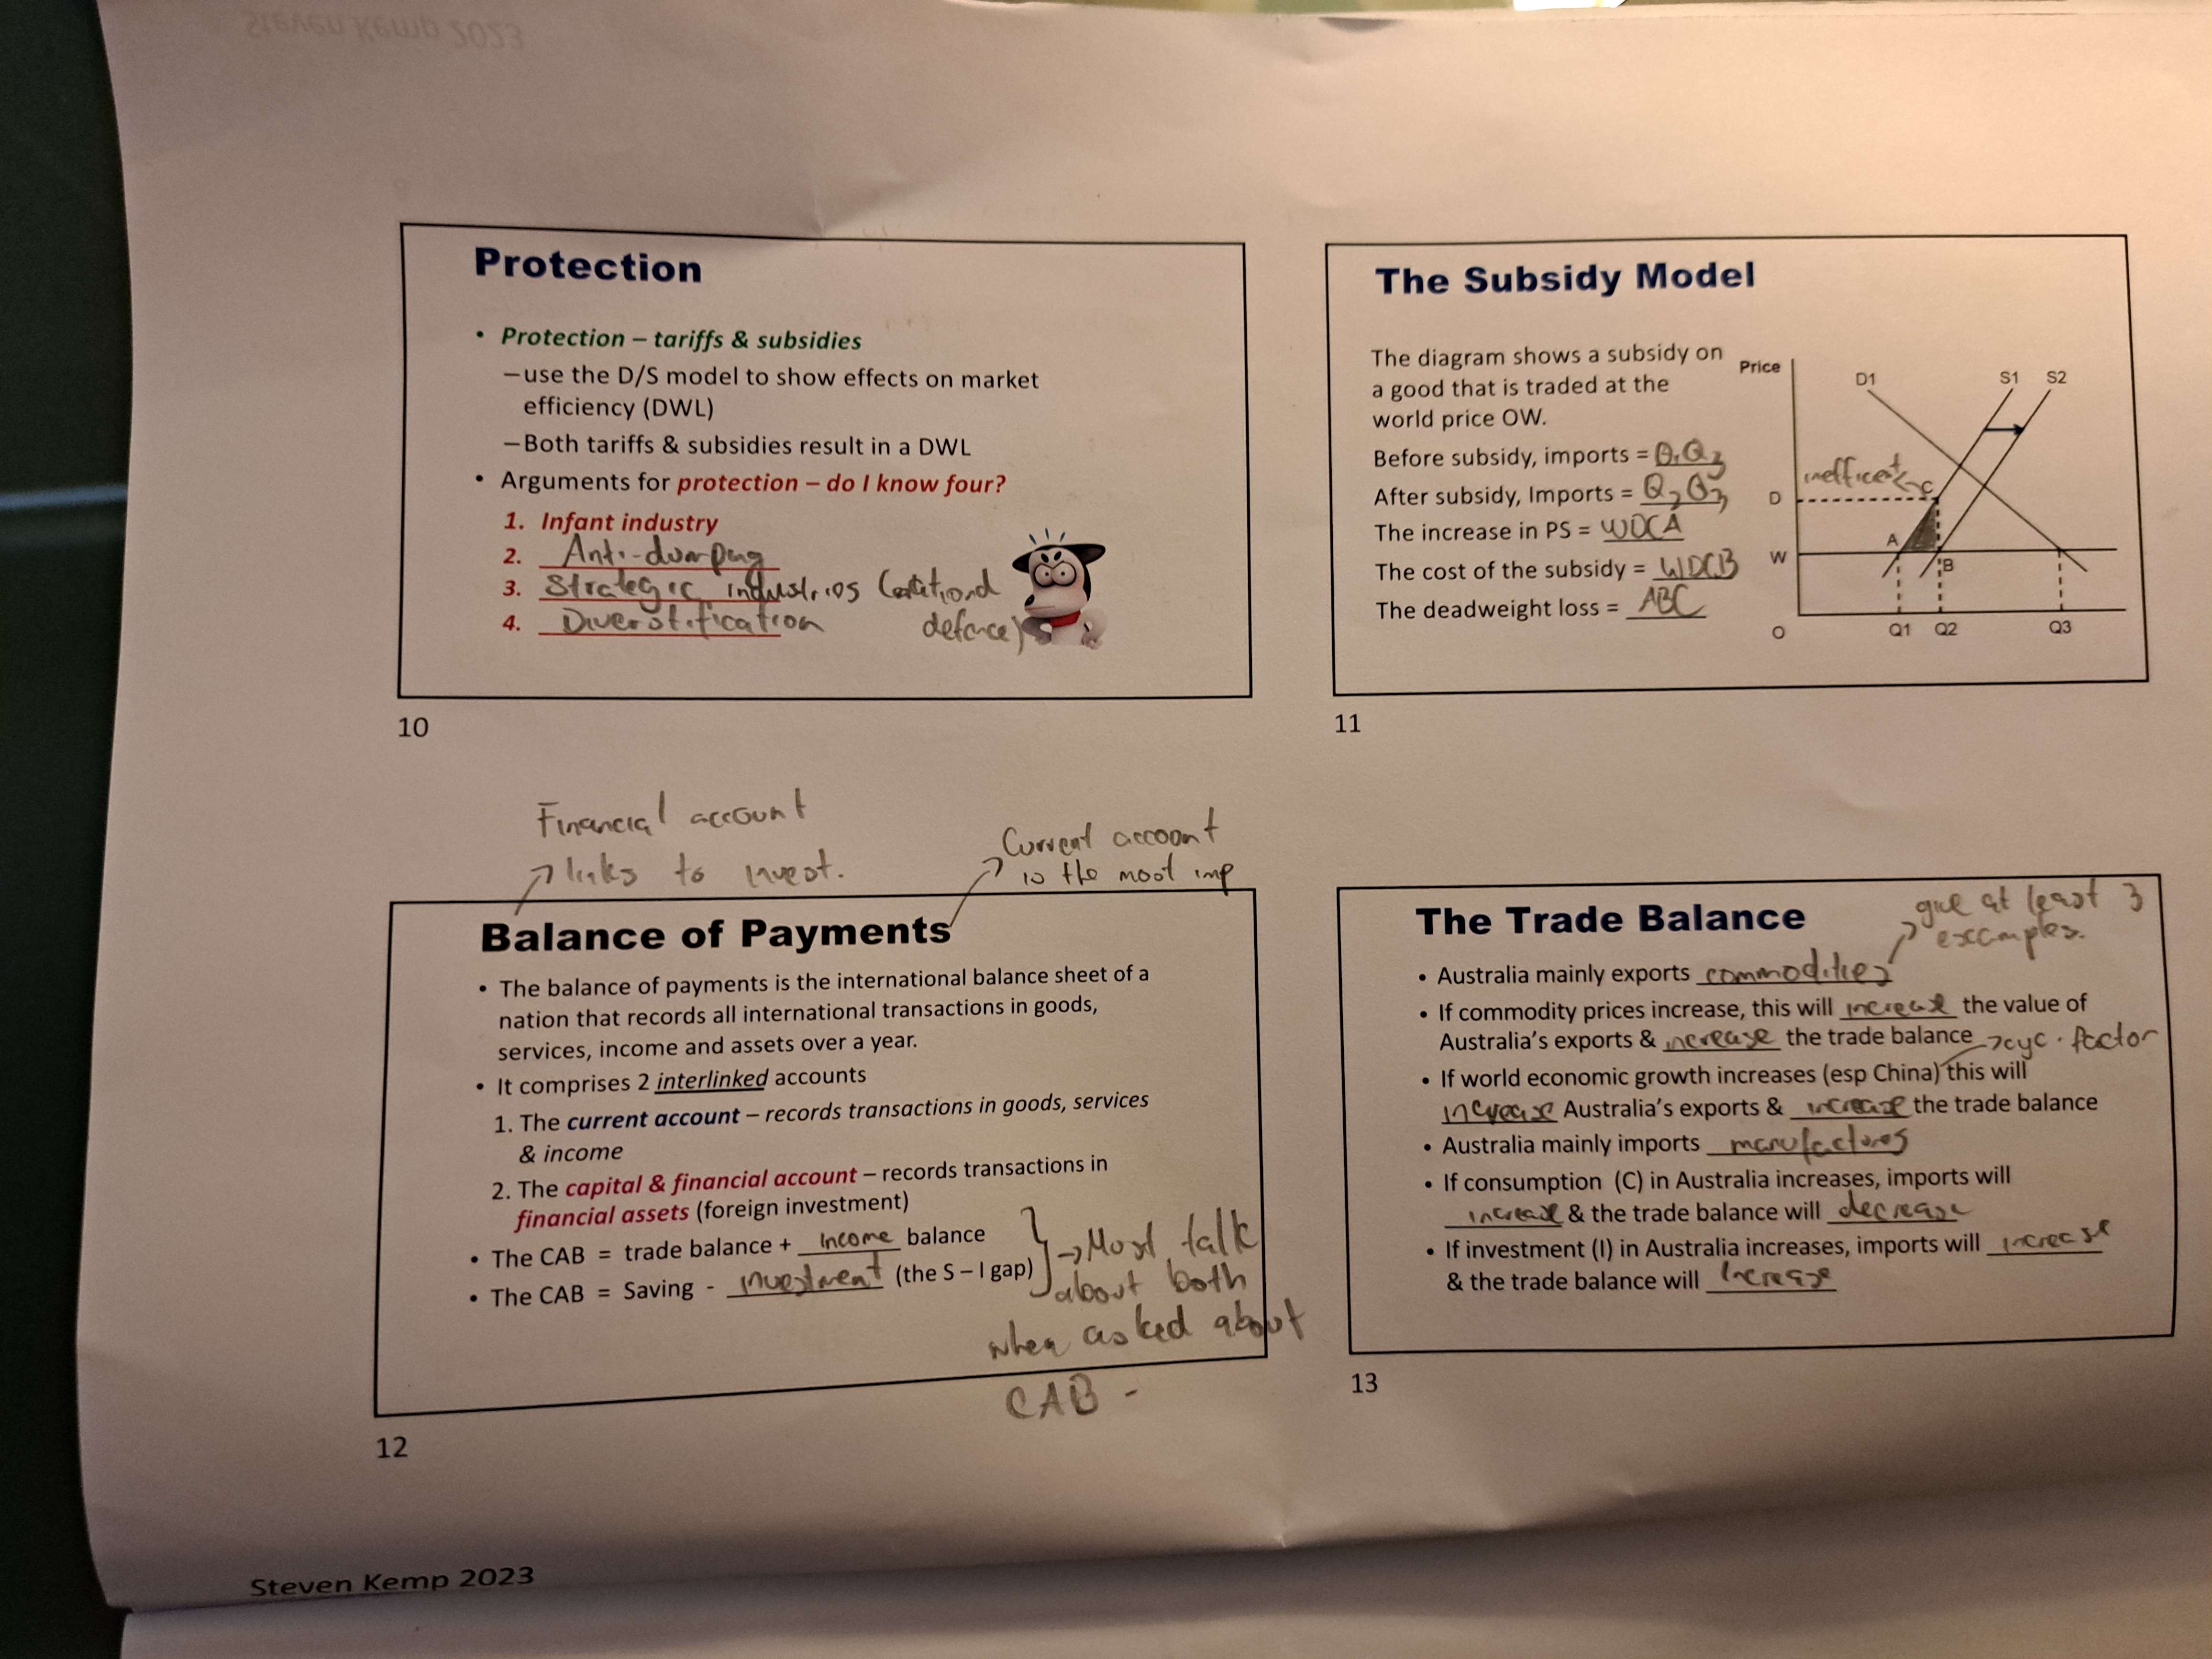 Steven Kemp 2023
Protection
• Protection – tariffs & subsidies
– use the D/S model to show effects on market
efficiency (DWL)
– Both tariffs & subsidies result in a DWL
• Arguments for protection – do I know four?
1. Infant industry
2. Anti-dumping
3. Strategic industries (national
defence)
4. Diverstification
10
The Subsidy Model
The diagram shows a subsidy on
a good that is traded at the
world price OW.
Before subsidy, imports = Q1Q3
After subsidy, Imports = Q2Q3
The increase in PS = WDCA
The cost of the subsidy = WDCB
The deadweight loss = ABC
Price
D1
S1 S2
C
D
A
W
B
O
Q1 Q2 Q3
11
Financial account
links to invest.
Current account
is the most imp
Balance of Payments
• The balance of payments is the international balance sheet of a
nation that records all international transactions in goods,
services, income and assets over a year.
• It comprises 2 interlinked accounts
1. The current account – records transactions in goods, services
& income
2. The capital & financial account – records transactions in
financial assets (foreign investment)
• The CAB = trade balance + Income balance
• The CAB = Saving - investment (the S – I gap)
→ Must talk
about both
when asked about
CAB -
12
The Trade Balance
give at least 3
excamples.
• Australia mainly exports commodities
• If commodity prices increase, this will increase the value of
Australia's exports & increase the trade balance
→ cyc. factor
• If world economic growth increases (esp China) this will
increase Australia's exports & increase the trade balance
• Australia mainly imports manufactures
• If consumption (C) in Australia increases, imports will
increase & the trade balance will decrease
• If investment (I) in Australia increases, imports will increase
& the trade balance will Increase
13
Steven Kemp 2023